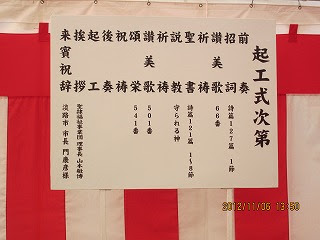 起工式次第
前奏
招詞 詩篇127篇 1節
讃美歌 66番
祈祷
聖書 詩篇121篇 1~8節
説教 守られる神
祈祷
讃美歌 501番
頌栄 541番
祝祷
後奏
起工
挨拶 聖隷福祉事業団 理事長 山本敏博
来賓祝辞 淡路市 市長 門康彦様
2012/11/06 13:50